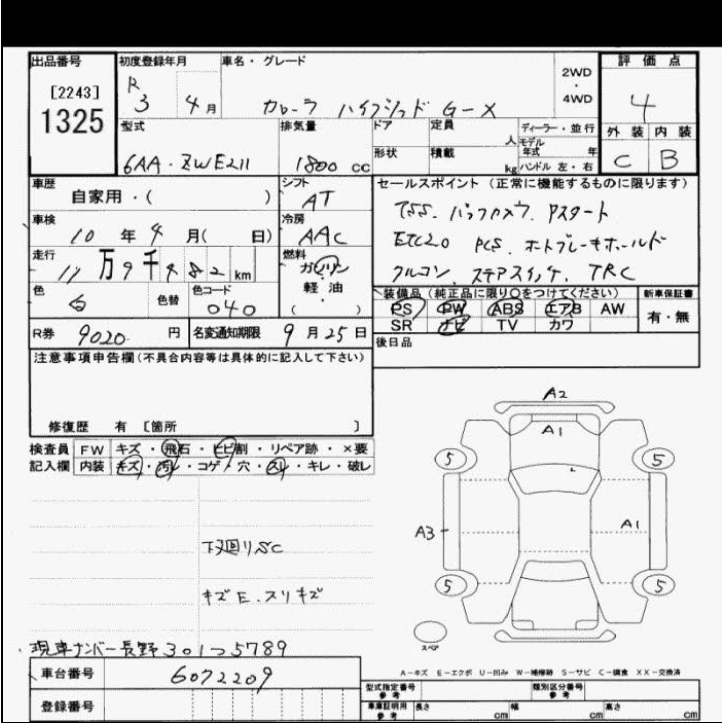 出品番号 初度登録年月 車名・グレード 評価点
[2243] R 3 4月 カローラ ハイブリッド G-X 2WD・4WD 4
1325
型式 排気量 ドア 定員 人 ディーラー・並行 外装 内装
6AA・ZWE211 1800 cc 形状 積載 kg モデル年式 年 C B
ハンドル 左・右
車歴 シフト セールスポイント(正常に機能するものに限ります)
自家用・( ) AT TSS. バックカメラ. Pスタート
車検 冷房
10年4月( 日) AAC ETC2.0 PCS. オートブレーキホールド
走行 燃料
11万9千482km ガソリン クルコン. ステアスイッチ. TRC
軽油
( )
色 色替 色コード 装備品(純正品に限り○をつけてください) 新車保証書
白 040 PS PW ABS エアB AW 有・無
SR ナビ TV カワ
R券 9020円 名変通知期限 9月25日
後日品
注意事項申告欄(不具合内容等は具体的に記入して下さい)
修復歴 有 [箇所 ]
検査員 FW キズ・飛石・ヒビ割・リペア跡・×要
記入欄 内装 キズ・汚れ・コゲ・穴・スレ・キレ・破レ
A2
A1
5 5
A3 A1
5 5
スペア
下廻りSC
キズE.スリキズ
現車ナンバー長野301つ5789
A-キズ E-エクボ U-凹み W-補修跡 S-サビ C-腐食 XX-交換済
車台番号 6072209
型式指定番号 参考 類別区分番号 参考
登録番号
車庫証明用 参考 長さ cm 幅 cm 高さ cm